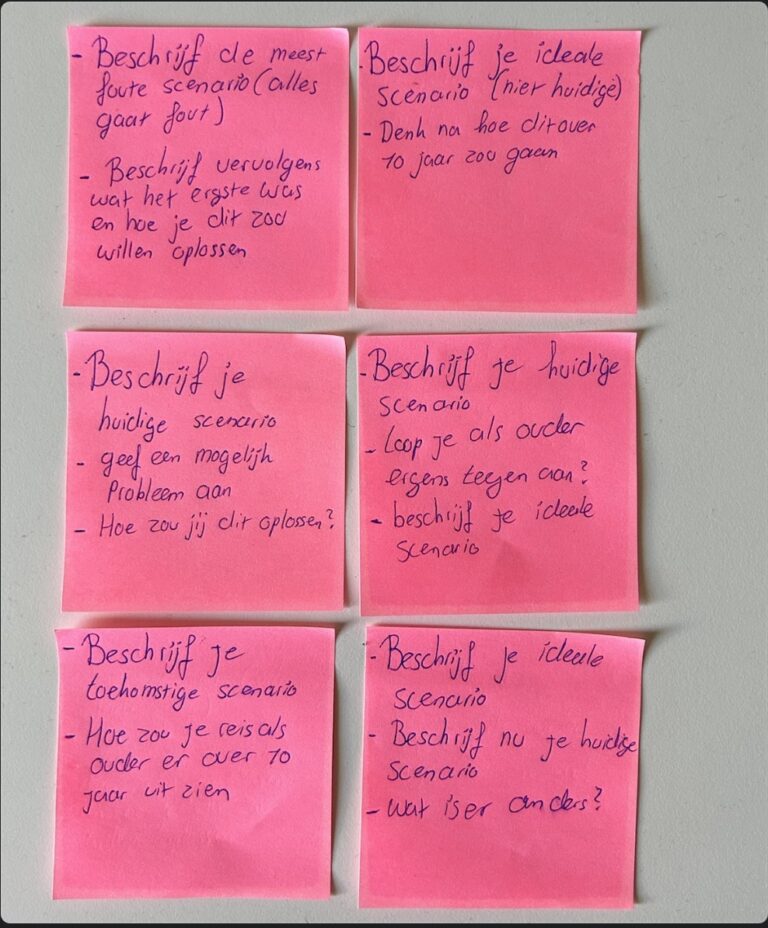 - Beschrijf de meest
foute scenario (alles
gaat fout)
- Beschrijf vervolgens
wat het ergste was
en hoe je dit zou
willen oplossen
- Beschrijf je ideale
scenario (niet huidige)
- Denk na hoe dit over
10 jaar zou gaan
- Beschrijf je
huidige scenario
- geef een mogelijk
probleem aan
- Hoe zou jij dit oplossen?
- Beschrijf je huidige
scenario
- Loop je als ouder
ergens tegen aan?
- beschrijf je ideale
scenario
- Beschrijf je
toekomstige scenario
- Hoe zou je reis als
ouder er over 10
jaar uit zien
- Beschrijf je ideale
scenario
- Beschrijf nu je huidige
scenario
- Wat is er anders?